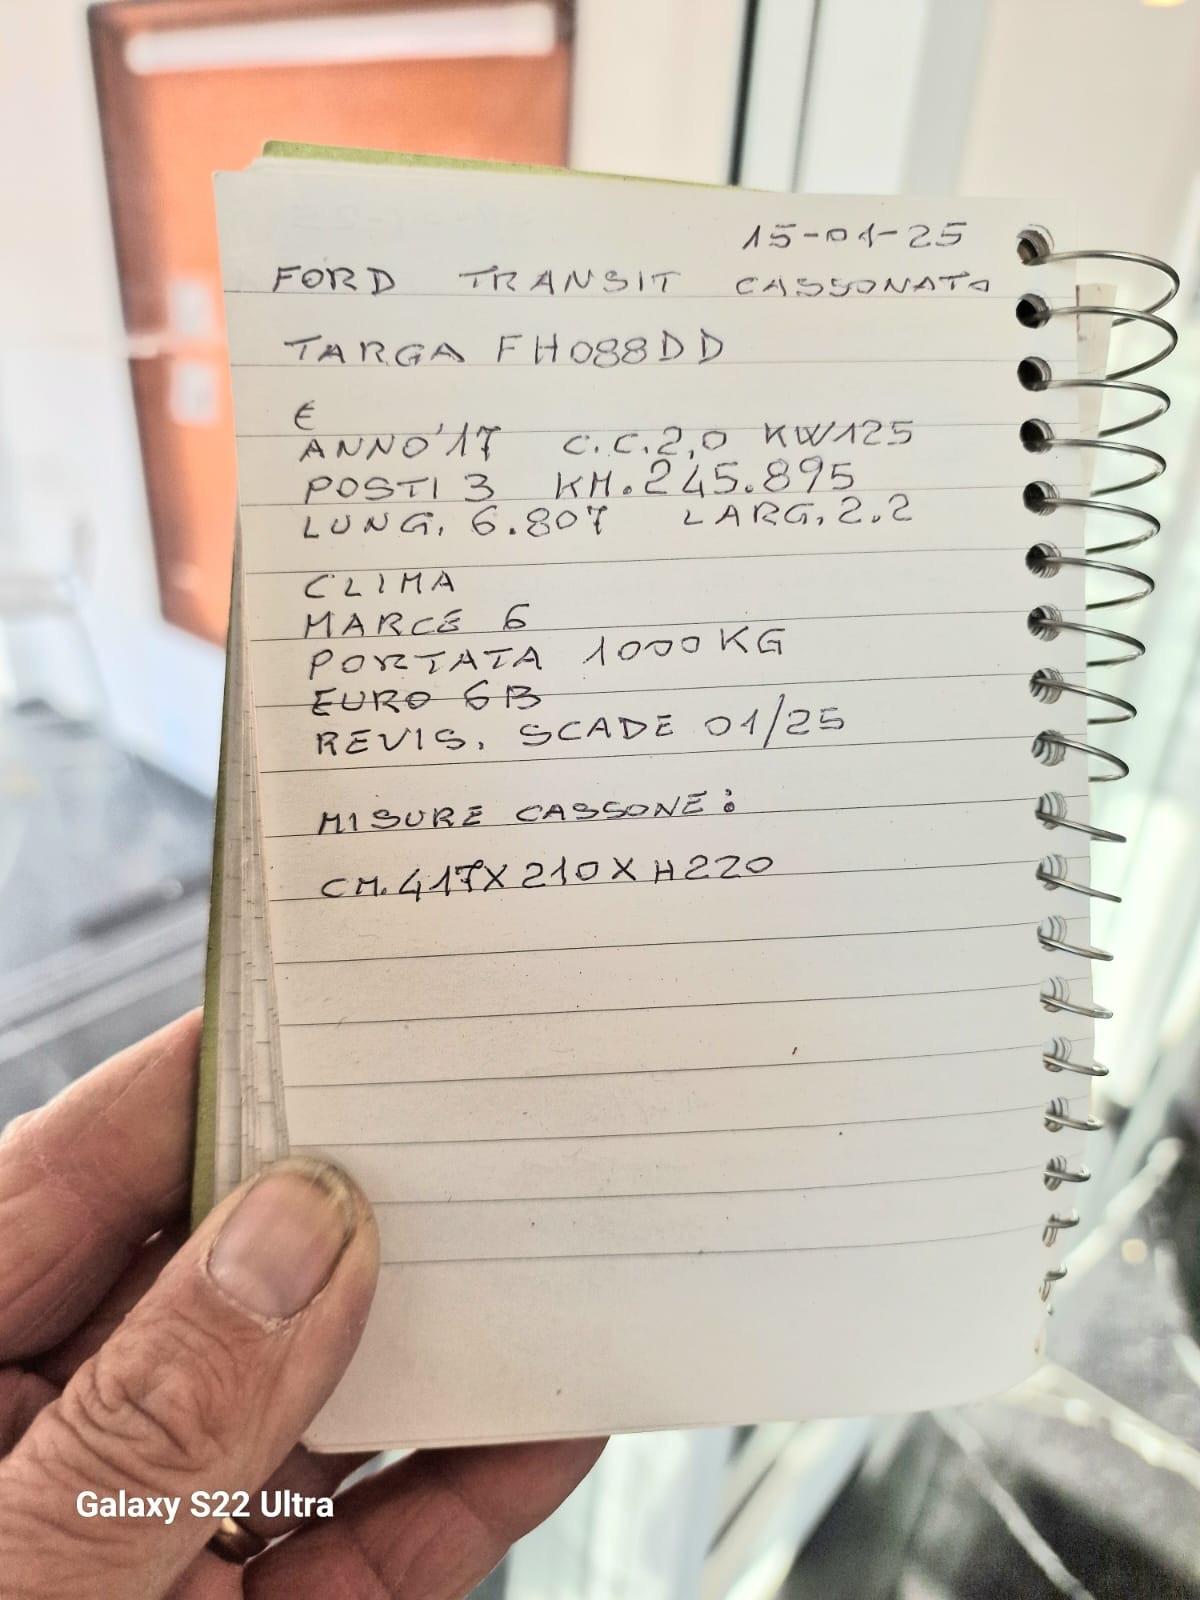 15-01-25
FORD TRANSIT CASSONATO
TARGA FH088DD
€
ANNO'17 C.C.2,0 KW125
POSTI 3 KM.245.895
LUNG. 6.807 LARG. 2.2
CLIMA
MARCE 6
PORTATA 1000 KG
EURO 6B
REVIS. SCADE 01/25
MISURE CASSONE:
CM. 417X210XH220
Galaxy S22 Ultra